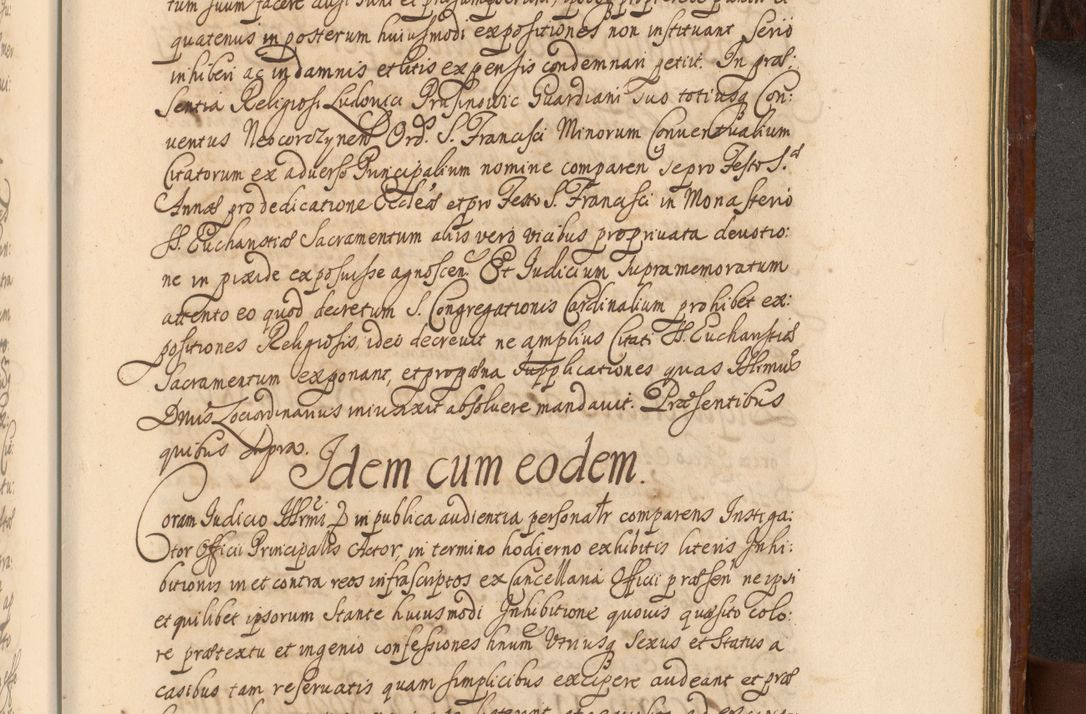 tum suum facere ausi sunt et
quatenus in posterum huiusmodi expositiones non instituant serio
inhiberi ac in damnis et litis expensis condemnari petiit. In præ:
sentia Religiosi Ludovici Guardiani suo totiusq Con:
ventus Neocorczynen Ord. S. Francisci Minorum Conventualium
Citatorum ex adverso Principalium nomine comparen se pro Festo S.
Annæ pro dedicatione Eccleæ et pro Festo S. Francisci in Monasterio
SS. Eucharistiæ Sacramentum aliis vero vicibus pro privata devotio:
ne in pixide exposuisse agnoscen. Et Iudicium supramemoratum
attento eo quod decretum S. Congregationis Cardinalium prohibet ex:
positiones Religiosis ideo decrevit ne amplius Citati SS. Eucharistiæ
Sacramentum exponant, et pro pæna supplicationes quas Illrmus
Dnus Loci ordinarius iniunxit absolvere mandavit. Præsentibus
quibus supra.
Idem cum eodem.
Coram Iudicio Illrmi D in publica audientia personalr comparens Instiga:
tor Officii Principalis Actor, in termino hodierno exhibitis literis Inhi:
bitionis in et contra reos infrascriptos ex Cancellaria Officii præsen ne ipsi
et quilibet ipsorum stante huiusmodi Inhibitione quovis quæsito colo:
re prætextu et ingenio confessiones hnum utriusq sexus et status a
casibus tam reservatis quam simplicibus excipere audeant et præ